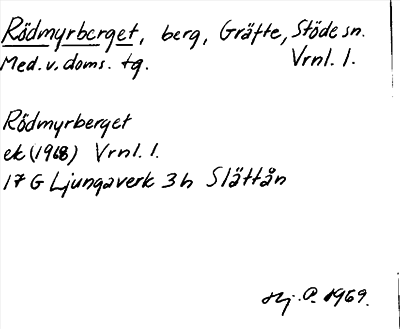 Rödmyrberget, berg, Gräfte, Stöde sn.
Med. v. doms. tg. Vrnl. l.
Rödmyrberget
ek (1968) Vrnl. l.
17 G Ljungaverk 3 h Slättån
Hj. P. 1969.